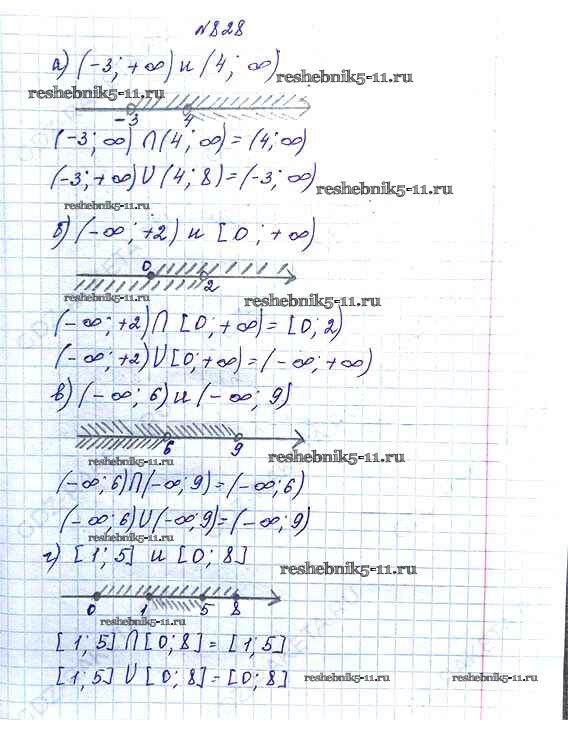 №828
а) (-3; +∞) и (4; ∞)
reshebnik5-11.ru
reshebnik5-11.ru
-3 4
(-3; ∞) ∩ (4; ∞) = (4; ∞)
(-3; +∞) U (4; 8) = (-3; ∞)
reshebnik5-11.ru
reshebnik5-11.ru
б) (-∞; +2) и [0; +∞)
0 2
reshebnik5-11.ru
reshebnik5-11.ru
(-∞; +2) ∩ [0; +∞) = [0; 2)
(-∞; +2) U [0; +∞) = (-∞; +∞)
в) (-∞; 6) и (-∞; 9)
6 9
reshebnik5-11.ru
reshebnik5-11.ru
(-∞; 6) ∩ (-∞; 9) = (-∞; 6)
(-∞; 6) U (-∞; 9) = (-∞; 9)
reshebnik5-11.ru
г) [1; 5] и [0; 8]
reshebnik5-11.ru
0 1 5 8
reshebnik5-11.ru
[1; 5] ∩ [0; 8] = [1; 5]
[1; 5] U [0; 8] = [0; 8]
reshebnik5-11.ru
reshebnik5-11.ru